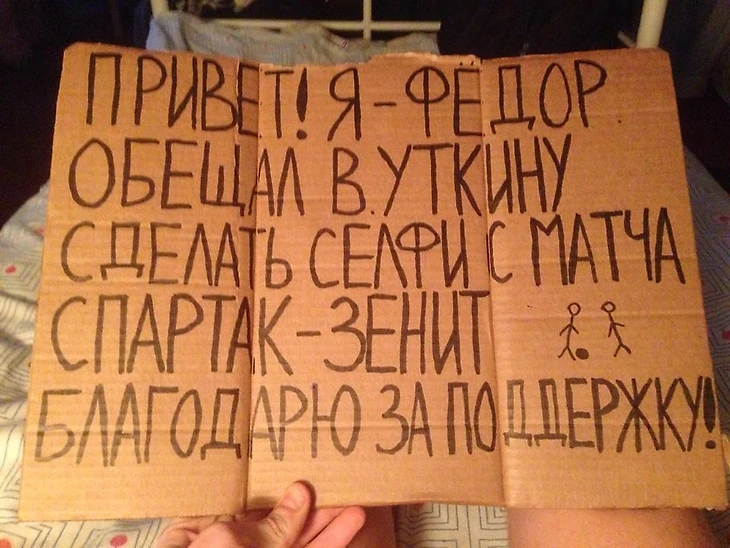 ПРИВЕТ! Я - ФЕДОР
ОБЕЩАЛ В. УТКИНУ
СДЕЛАТЬ СЕЛФИ С МАТЧА
СПАРТАК - ЗЕНИТ
БЛАГОДАРЮ ЗА ПОДДЕРЖКУ!